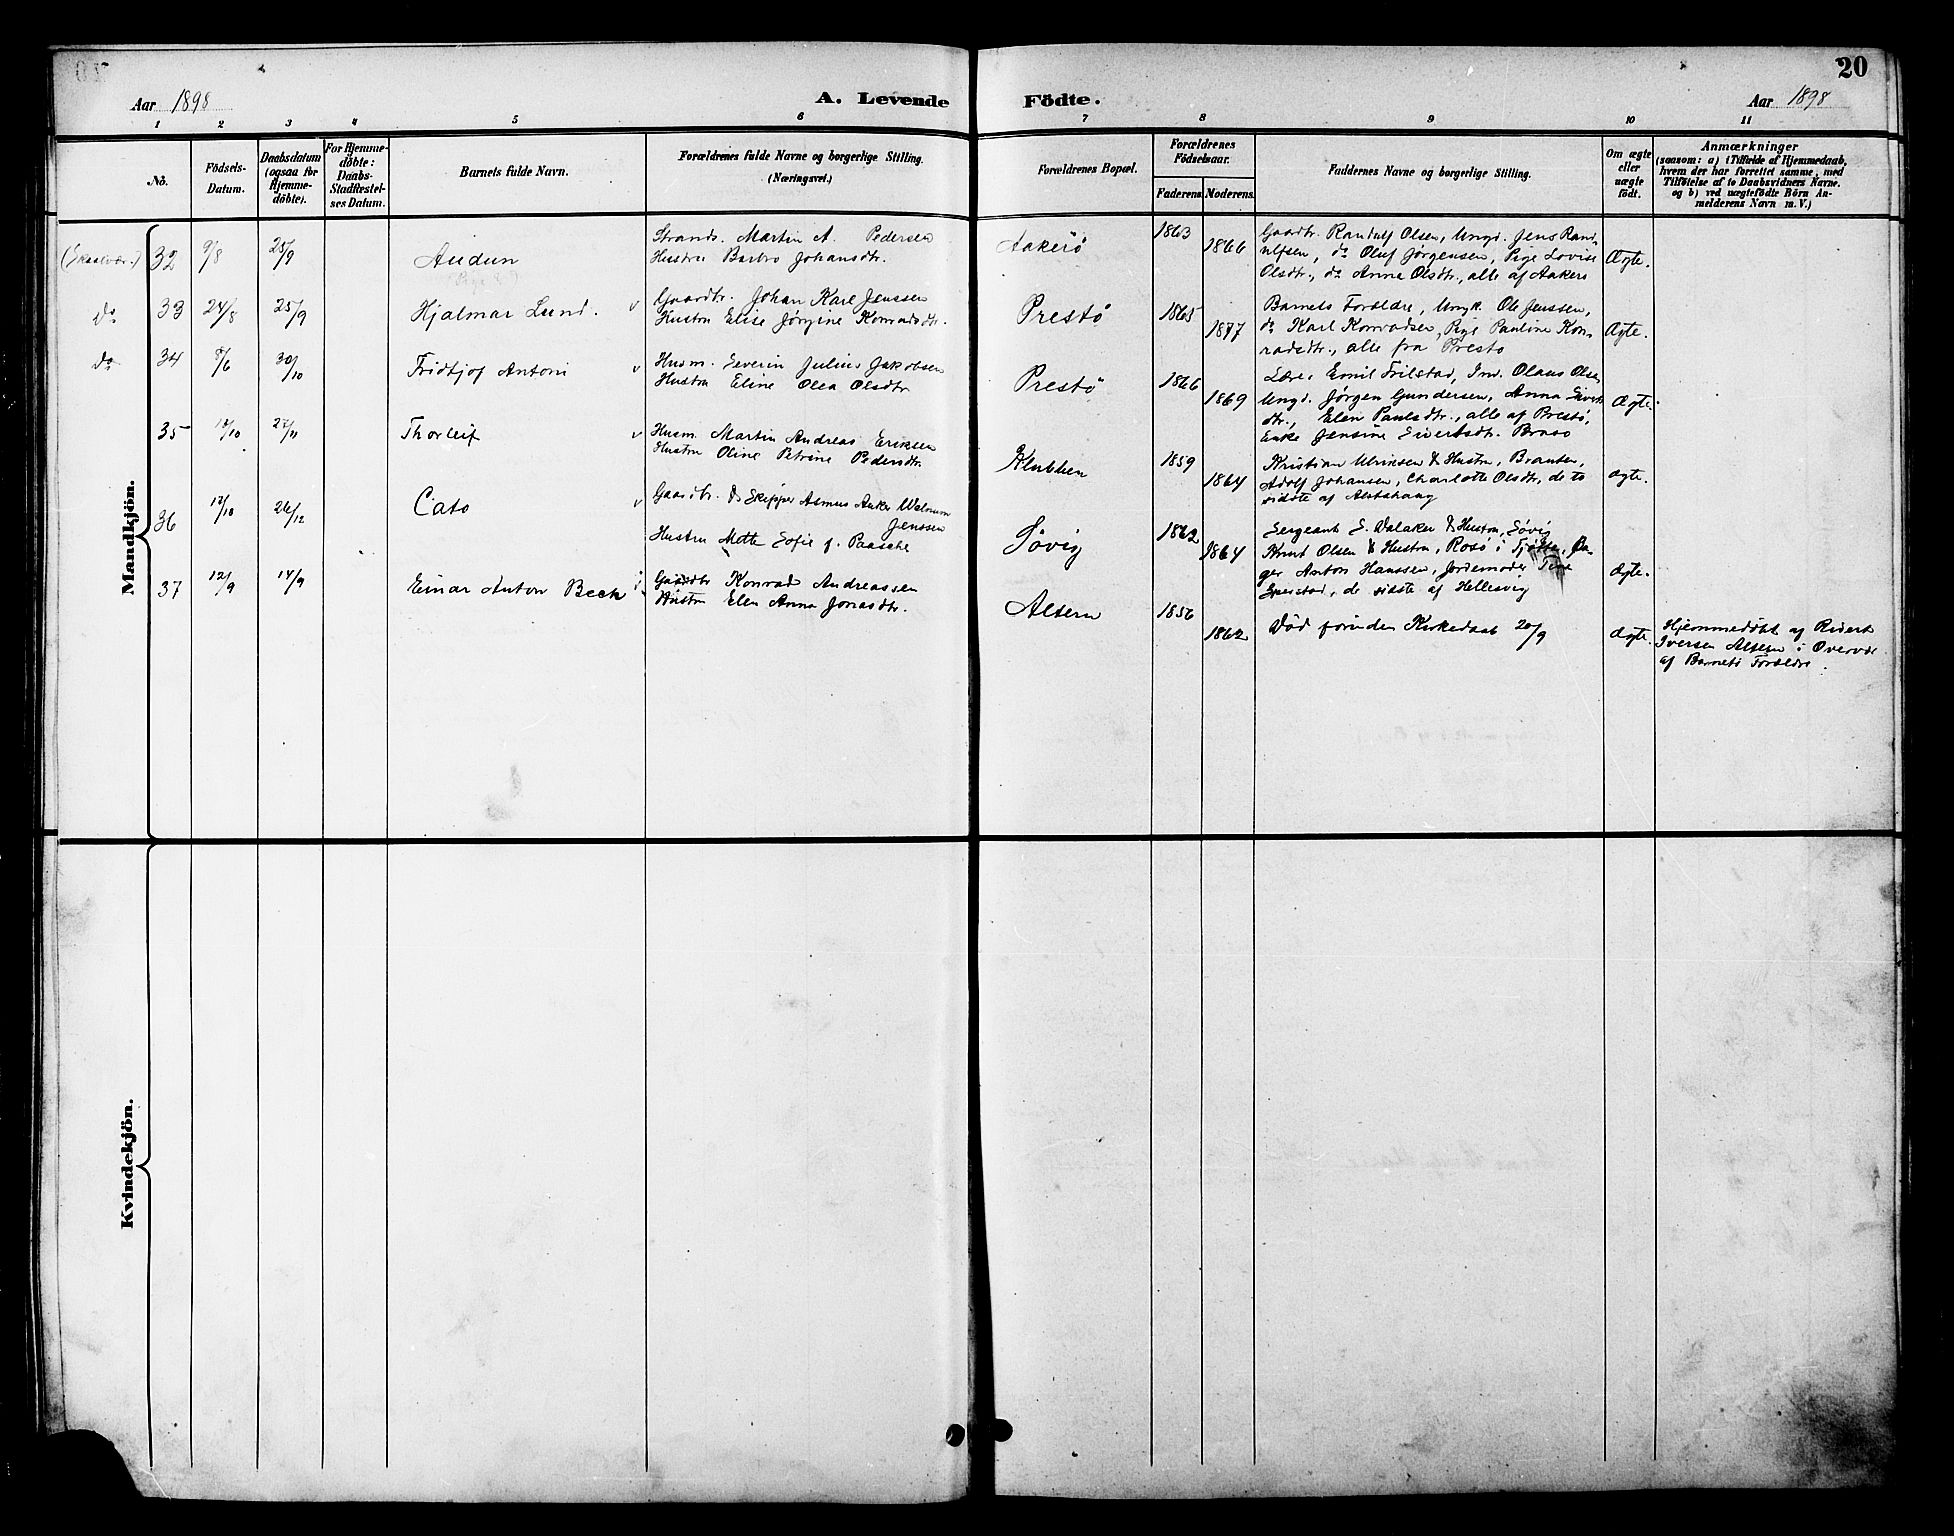 20
Aar 1898
A. Levende Födte.
Aar 1898
1 2 3 4 5 6 7 8 9 10 11
No.
Födsels-Datum.
Daabsdatum (ogsaa for Hjemme-döbte).
For Hjemme-döbte: Daabs-Stadfæstel-ses Datum.
Barnets fulde Navn.
Forældrenes fulde Navne og borgerlige Stilling.
(Næringsvei.)
Forældrenes Bopæl.
Forældrenes Födselsaar.
Faderens. Moderens.
Faddernes Navne og borgerlige Stilling.
Om ægte eller uægte födt.
Anmærkninger
(saasom: a) i Tilfælde af Hjemmedaab,
hvem der har forrettet samme, med
Tilföielse af to Daabsvidners Navne.
og b) ved uægtefödte Börn An-
melderens Navn m. V.)
Mandkjön.
(Skaalvær.) 32 9/8 25/9 Audun
Strands. Martin A. Pedersen
Hustru Barbro Johansdtr.
Aakerö 1863 1866
Gaardbr. Randulf Olsen, Ungd. Jens Rand-
ulfsen, do Oluf Jørgensen, Pige Lovise
Olsdtr., do Anna Olsdtr., alle af Aakerö
Ægte.
do 33 24/8 25/9 Hjalmar Lund. v
Gaardbr. Johan Karl Jenssen
Hustru Elise Jørgine Konradsdtr.
Prestö 1865 1877
Barnets Forældre, Ungk. Ole Jenssen,
do Karl Konradsen, Pige Pauline Kon-
radsdtr., alle fra Prestö
Ægte.
do 34 /6 30/10 Fridtjof Antoni v
Husm. Severin Julius Jakobsen
Hustru Eline Olea Olsdtr
Prestö 1866 1869
Lærer Emil Frilstad, Ind. Olaus Olsen
Ungd. Jørgen Gundersen, Anna Siverts
dtr., Elen Paulsdtr., alle af Prestö,
Enke Jensine Sivertsdtr. Brasö
Ægte.
35 /10 27/11 Thorleif v
Husm. Martin Andreas Eriksen
Hustru Oline Petrine Pedersdtr.
Klubben 1859 1864
Kristian Ulriksen & Hustru, Brauten,
Adolf Johansen, Charlotte Olsdtr, de to
sidste af Alstahaug
Ægte.
36 17/10 26/12 Cato v
Gaardbr. & Skipper Asmus Anker Walnum
Jenssen
Hustru Mette Sofie f. Paasche
Søvig 1862 1864
Sergeant E. Dalaker & Hustru, Søvig
Knut Olsen & Hustru, Rosö i Tjøtta,
ger Anton Hanssen, Jordemoder
de sidste af Hellesvig
Ægte.
37 12/9 14/9 Einar Anton Beck
Gaardbr Konrad Andreassen
Hustru Elen Anna Jonasdtr.
Alsten 1856 1862
Død forinden Kirkedaab 20/9
Ægte.
Hjemmedøbt af Rikert
Iversen Alsten i Overvær
af Barnets Forældre.
Kvindekjön.